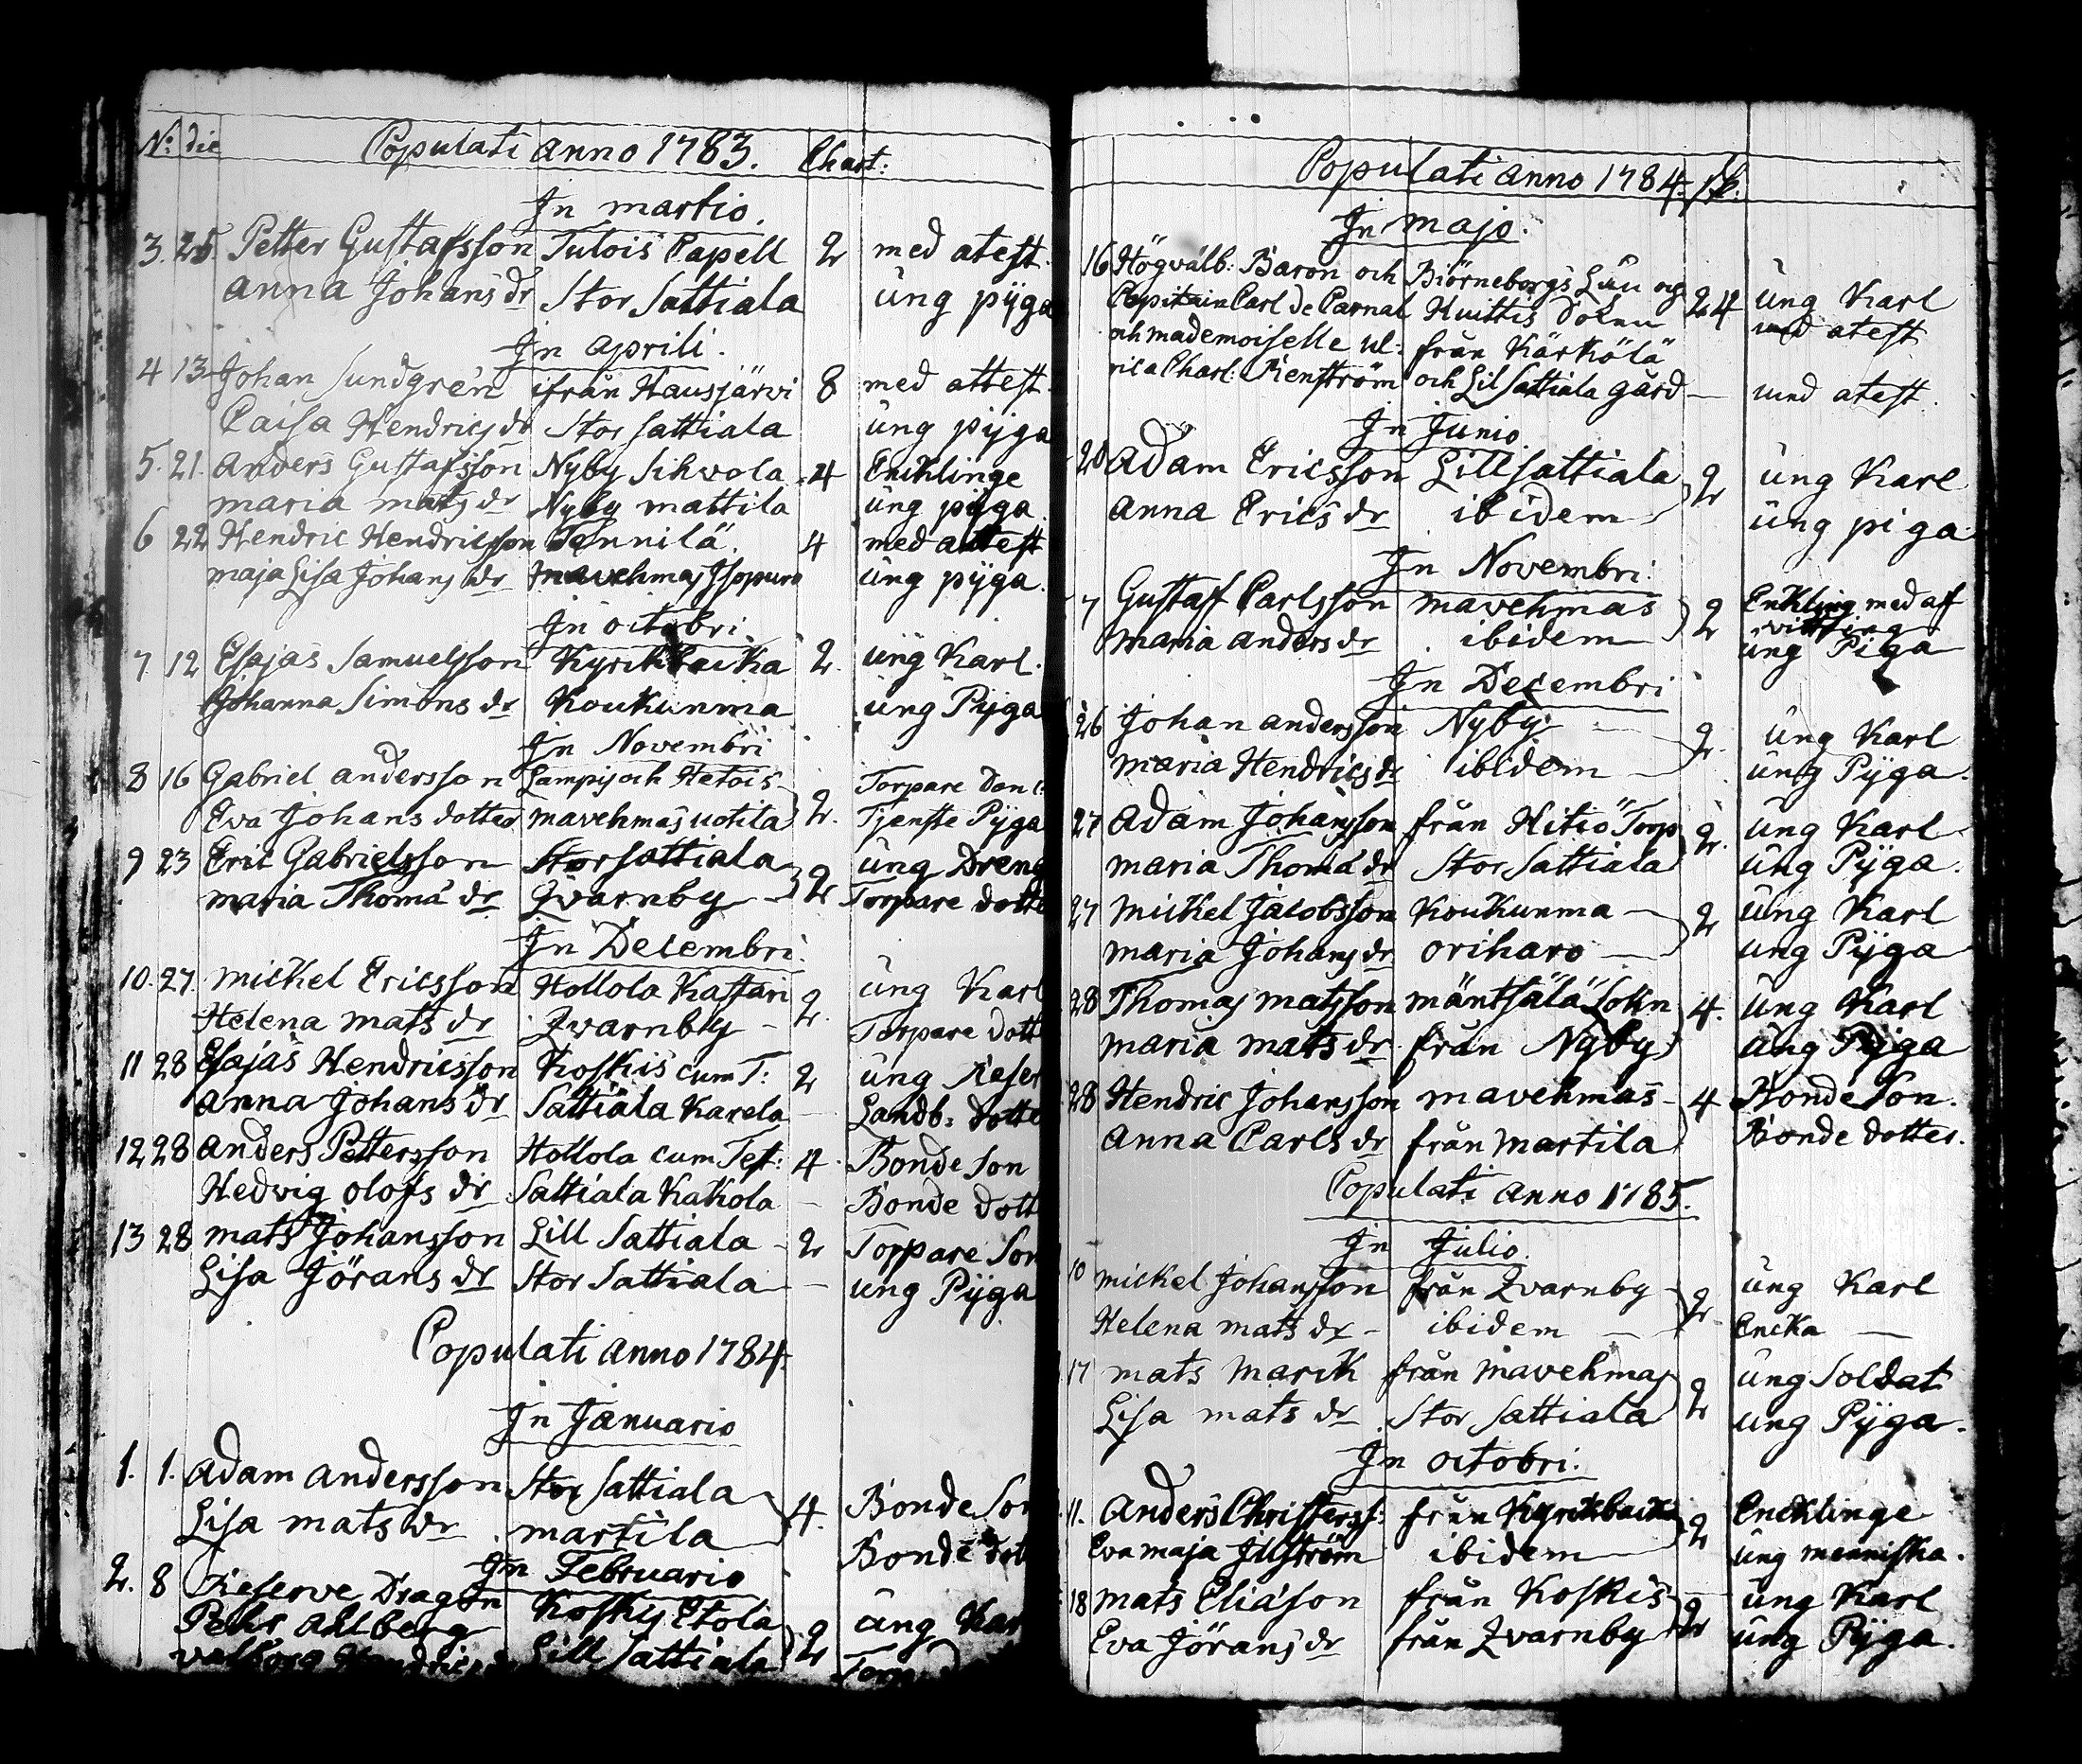 No: die Populati anno 1783. Chart:
In martio.
3. 25. Petter Gustafsson Tulois Capell 2 med atest.
anna Johans dr Stor Sattiala ung pÿga
In aprili.
4 13 Johan Sundgren ifrån Hausjärvi 8 med attest.
Caisa Hendrics dr Stor Sattiala ung pÿga
5. 21. anders Gustafsson Nyby Sihvola 4 Encklinge
maria mats dr Nyby mattila ung pÿga.
6 22 Hendric Hendricsson Tennilä. 4 med attest
maja Lisa Johans dr mavehmas ung pÿga.
In octobri.
7. 12 Esajas Samuelsson Kyrckbacka 2. ung Karl.
Johanna Simons dr Koukunma ung Pÿga
In Novembri
8 16 Gabriel andersson Lampis och Hetois 2. Torpare
Eva Johans dotter mavehmas uotila Tjenste Pÿga
9 23 Eric Gabrielsson Stor Sattiala 2 ung Dreng
maria Thoma dr Qvarnby Torpare dotte
In Decembri.
10. 27. mickel Ericsson Hollola Kastari 2. ung Karl
Helena mats dr Qvarnby Torpare dott
11 28 Esajas Hendricsson Koskis cum T: 2 ung Reser
anna Johans dr Sattiala Karela Landb: dotte
12 28 anders Pettersson Hollola cum Test: 4 Bonde Son
Hedvig olofs dr Sattiala Kakola Bonde dott
13 28 mats Johansson Lill Sattiala 2 Torpare Son
Lisa Jörans dr Stor Sattiala ung Pÿga
Populati anno 1784.
In Januario
1. 1. Adam andersson Stor Sattiala 4. Bonde Son
Lisa mats dr martila Bonde dott
In Februario
2. 8 Reserve Dragon Koskis Etola 2 ung Kar
Pehr ahlberg Lill Sattiala
Populati anno 1784.
In majo.
16 Högvälb: Baron och Biörneborgs Län og 24 ung Karl
Capitain Carl de Carnal Huittis Sokn med atest
och mademoiselle ul: från Kärkölä
rica Charl: Renström och Lil Sattiala gård med atest.
In Junio.
20 Adam Ericsson Lill Sattiala 2 ung Karl
anna Erics dr ibidem ung piga
In Novembri.
7 Gustaff Carlsson mavehmas 2 Enkling med af
vittring
maria anders dr ibidem ung Piga
In Decembri
26 Johan andersson Nyby 2. ung Karl
maria Hendrics dr ibidem ung Pÿga.
27 Adam Johansson från Hitiö Torp 2. ung Karl
maria Thoma dr Stor Sattiala ung Pÿga.
27 mickel Jacobsson Koukunma 2 ung Karl
maria Johans dr oriharo ung Pÿga
28 Thomas matsson mäntsälä Sokn 4. ung Karl
maria mats dr från Nyby ung Pÿga
28 Hendric Johansson mavehmas 4 Bonde Son.
Anna Carls dr från Martila Bonde dotter.
Populati anno 1785.
In Julio.
10 mickel Johansson från Qvarnby 2 ung Karl
Helena mats dr ibidem Encka
17 mats marck från mavehmas 2 ung Soldat
Lisa mats dr Stor Sattiala ung Pÿga.
In octobri.
11. Anders Christerss: från Kyrckbacka 2 Encklinge
Eva maja Illström ibidem ung menniska.
18 mats Eliason från Koskis 2 ung Karl
Eva Jörans dr från Qvarnby ung Pÿga.